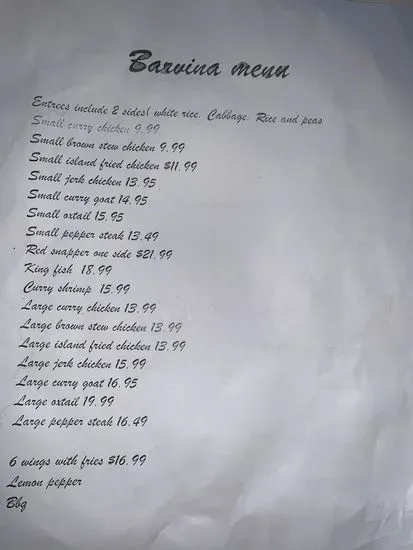 Barvina menu
Entrees include 2 sides( white rice. Cabbage. Rice and peas
Small curry chicken 9.99
Small brown stew chicken 9.99
Small island fried chicken $11.99
Small jerk chicken 13.95
Small curry goat 14.95
Small oxtail 15.95
Small pepper steak 13.49
Red snapper one side $21.99
King fish 18.99
Curry shrimp 15.99
Large curry chicken 13.99
Large brown stew chicken 13.99
Large island fried chicken 13.99
Large jerk chicken 15.99
Large curry goat 16.95
Large oxtail 19.99
Large pepper steak 16.49
6 wings with fries $16.99
Lemon pepper
Bbq